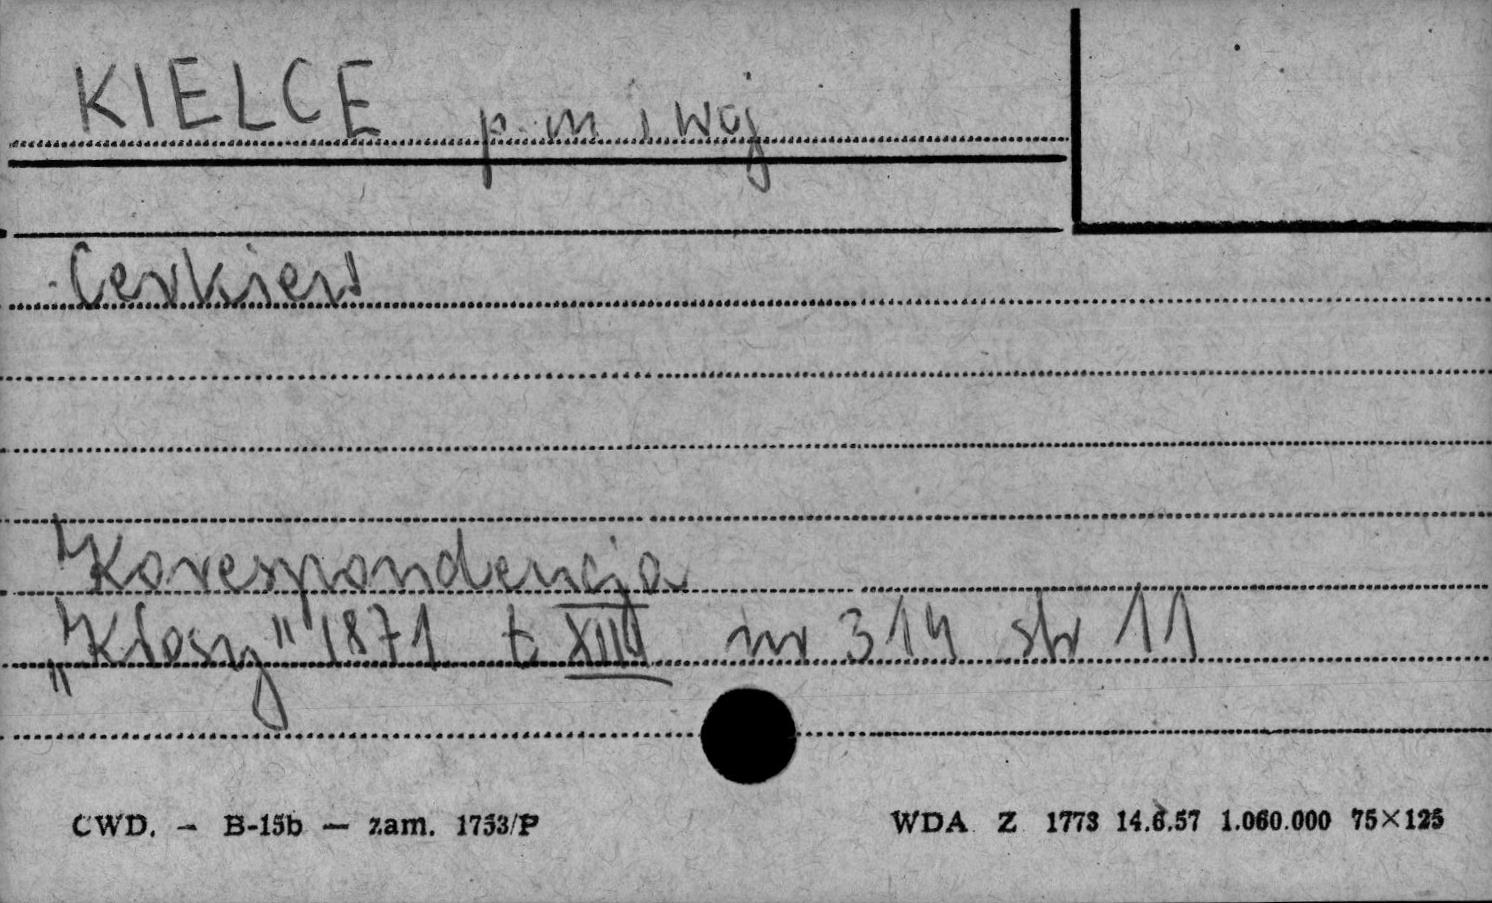 KIELCE p. m. i woj
Cerkiew
Korespondencja
„Kłosy" 1871 t XIII nr 314 str 11
CWD. — B-15b — zam. 1753/P
WDA Z 1773 14.6.57 1.060.000 75×125